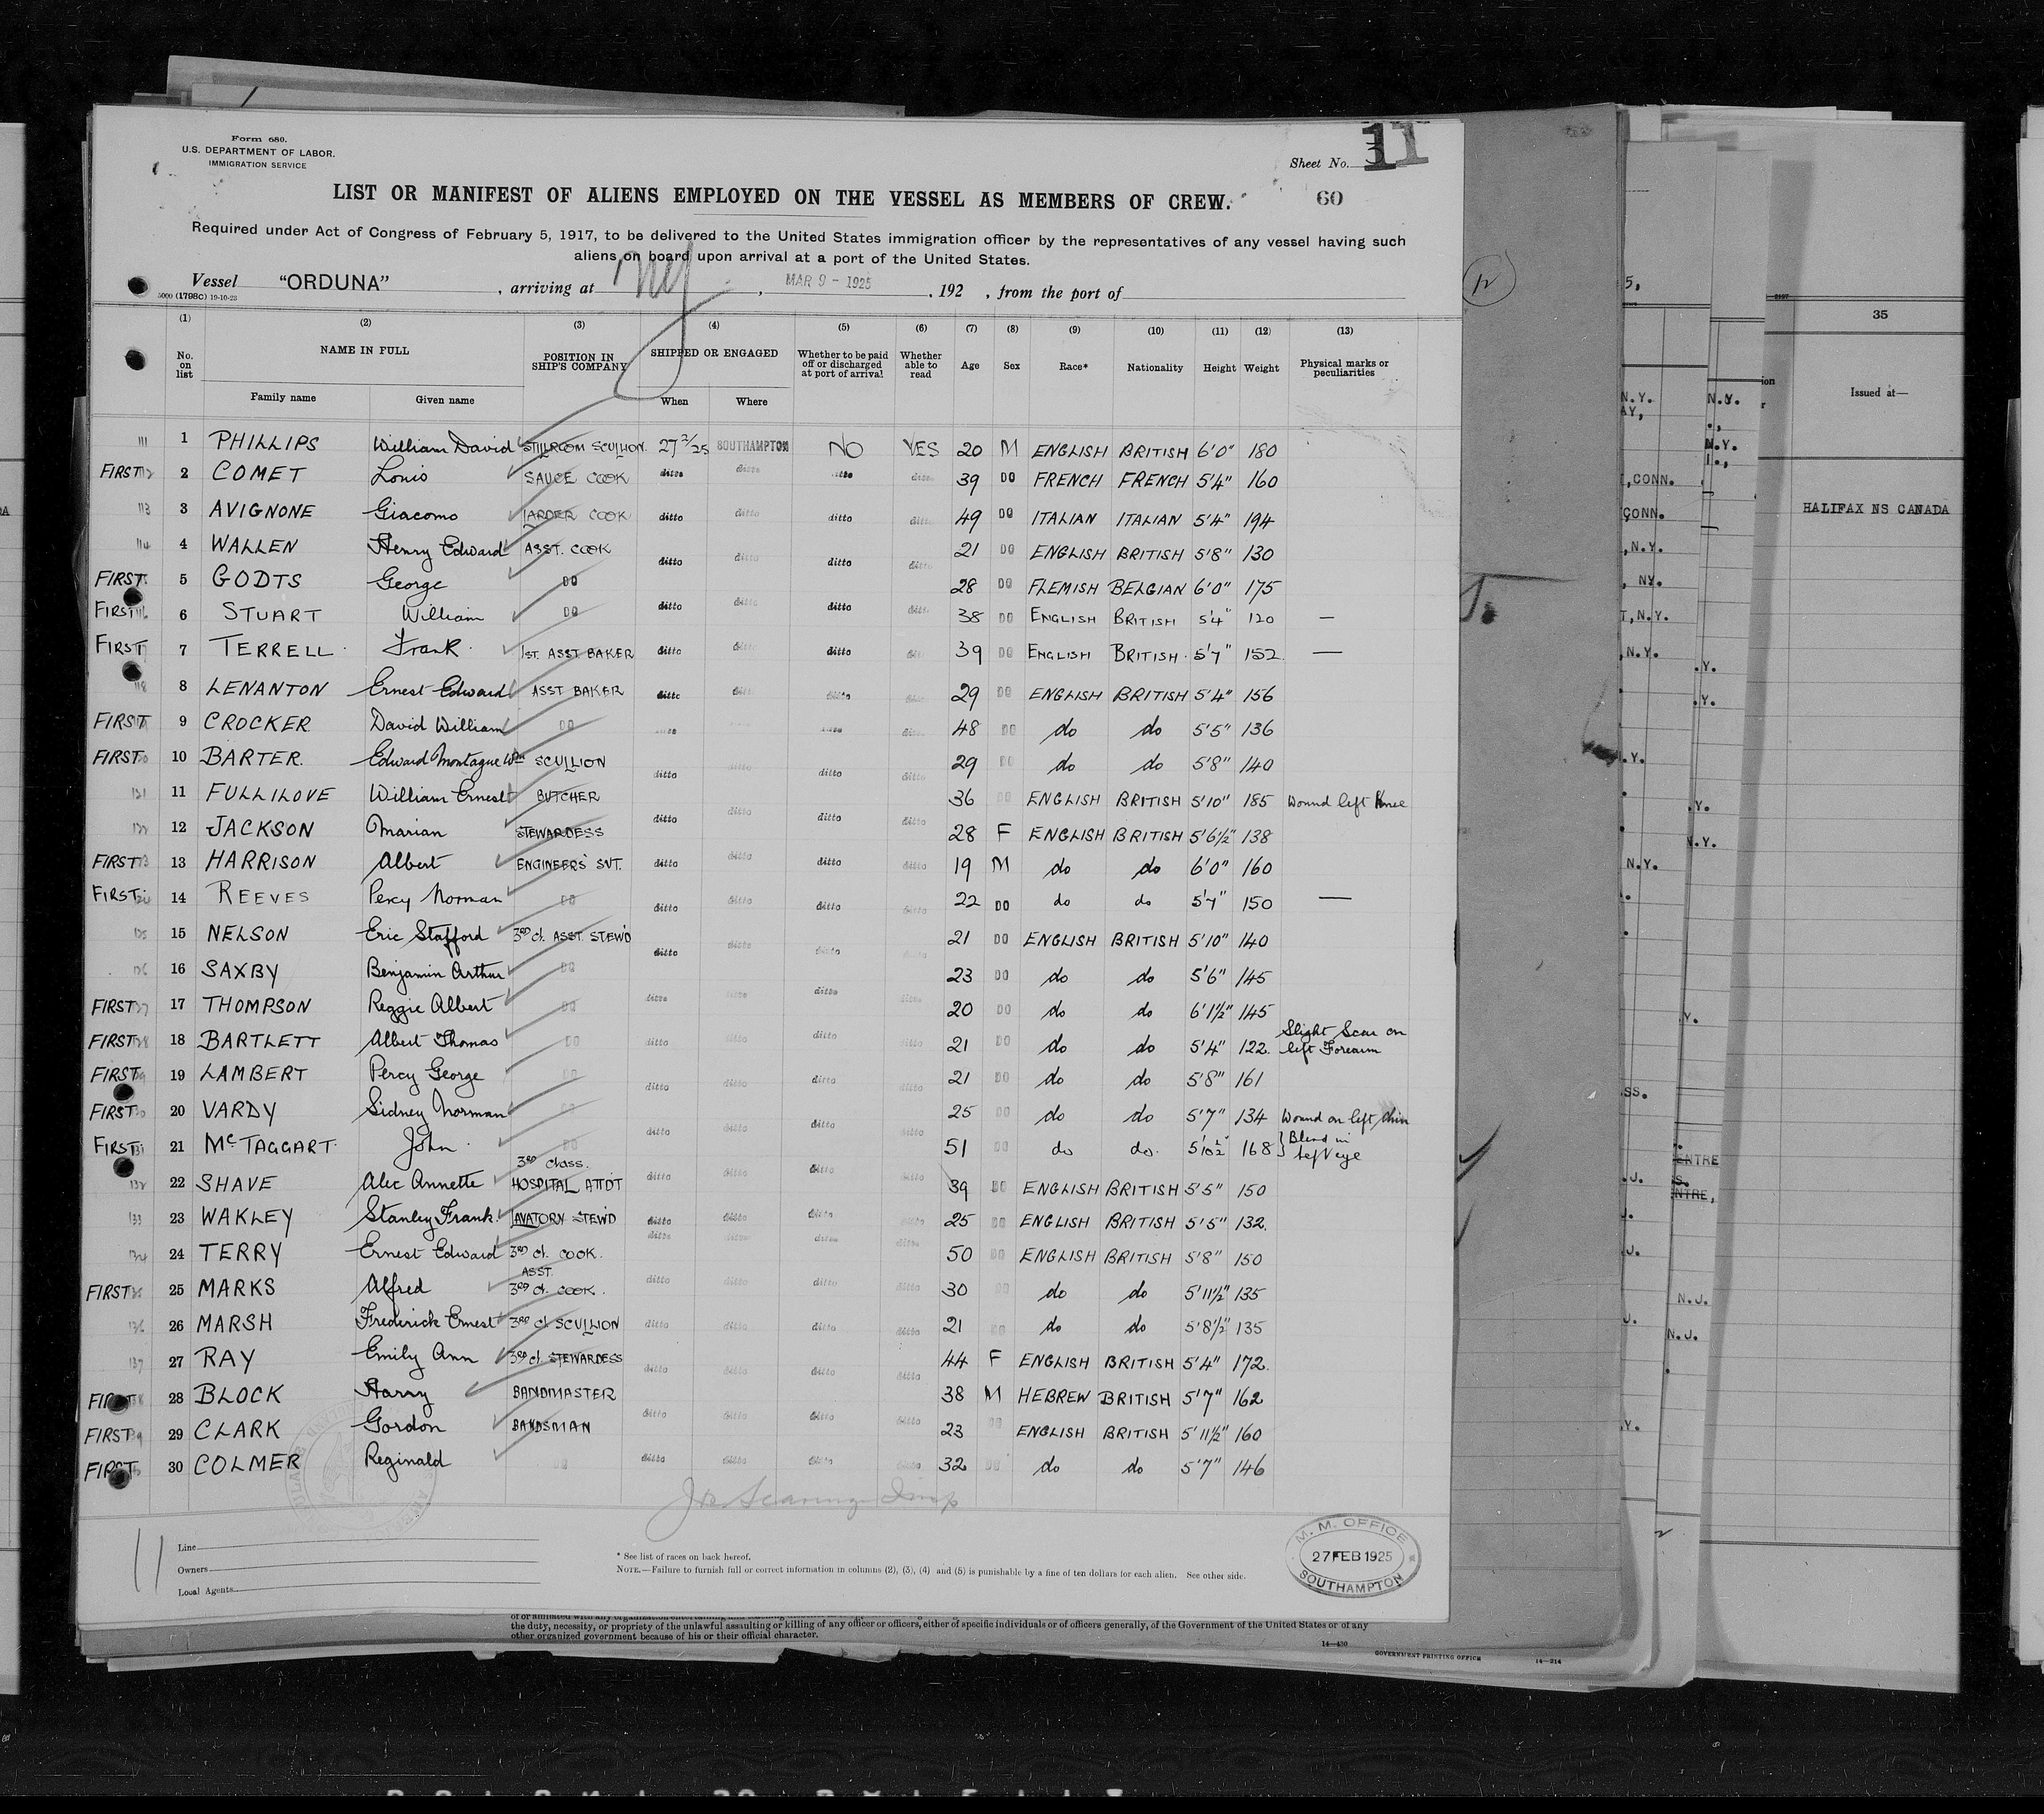 Form 680.
U.S. DEPARTMENT OF LABOR.
IMMIGRATION SERVICE
Sheet No. 11
LIST OR MANIFEST OF ALIENS EMPLOYED ON THE VESSEL AS MEMBERS OF CREW.
60
Required under Act of Congress of February 5, 1917, to be delivered to the United States immigration officer by the representatives of any vessel having such
aliens on board upon arrival at a port of the United States.
Vessel "ORDUNA" , arriving at NY , MAR 9 - 1925 , 192 , from the port of
5000 (1798C) 19-10-23
(1) (2) (3) (4) (5) (6) (7) (8) (9) (10) (11) (12) (13)
No. on list NAME IN FULL Family name Given name POSITION IN SHIP'S COMPANY SHIPPED OR ENGAGED When Where Whether to be paid off or discharged at port of arrival Whether able to read Age Sex Race* Nationality Height Weight Physical marks or peculiarities
111 1 PHILLIPS William David STILLROOM SCULLION. 27 2/25 SOUTHAMPTON NO YES 20 M ENGLISH BRITISH 6'0" 180
FIRST 112 2 COMET Louis SAUCE COOK ditto ditto ditto ditto 39 DO FRENCH FRENCH 5'4" 160
113 3 AVIGNONE Giacomo LARDER COOK ditto ditto ditto ditto 49 DO ITALIAN ITALIAN 5'4" 194
114 4 WALLEN Henry Edward ASST. COOK ditto ditto ditto ditto 21 DO ENGLISH BRITISH 5'8" 130
FIRST 5 GODTS George DO 28 DO FLEMISH BELGIAN 6'0" 175
FIRST 6 STUART William DO ditto ditto ditto ditto 38 DO ENGLISH BRITISH 5'4" 120 —
FIRST 7 TERRELL Frank 1ST. ASST BAKER ditto ditto ditto ditto 39 DO ENGLISH BRITISH 5'7" 152. —
118 8 LENANTON Ernest Edward ASST BAKER ditto ditto ditto ditto 29 DO ENGLISH BRITISH 5'4" 156
FIRST 9 CROCKER David William DO ditto ditto ditto 48 DO do do 5'5" 136
FIRST 10 BARTER. Edward Montague Wm SCULLION ditto ditto ditto ditto 29 DO do do 5'8" 140
121 11 FULLILOVE William Ernest BUTCHER 36 DO ENGLISH BRITISH 5'10" 185 Wound left Knee
122 12 JACKSON Marian STEWARDESS ditto ditto ditto ditto 28 F ENGLISH BRITISH 5'6½" 138
FIRST 13 HARRISON Albert ENGINEERS' SVT. ditto ditto ditto ditto 19 M do do 6'0" 160
FIRST 14 REEVES Percy Norman DO ditto ditto ditto ditto 22 DO do do 5'7" 150 —
125 15 NELSON Eric Stafford 3RD cl. ASST. STEWD ditto ditto ditto ditto 21 DO ENGLISH BRITISH 5'10" 140
126 16 SAXBY Benjamin Arthur DO 23 DO do do 5'6" 145
FIRST 17 THOMPSON Reggie Albert DO ditto ditto ditto ditto 20 DO do do 6'1½" 145
FIRST 18 BARTLETT Albert Thomas DO ditto ditto ditto ditto 21 DO do do 5'4" 122. Slight Scar on left Forearm
FIRST 19 LAMBERT Percy George DO ditto ditto ditto ditto 21 DO do do 5'8" 161
FIRST 20 VARDY Sidney Norman DO 25 DO do do 5'7" 134 Wound on left shin
FIRST 21 McTAGGART. John DO ditto ditto ditto ditto 51 DO do do. 5'10½" 168 Blind in left eye
132 22 SHAVE Alec Annette 3RD class. HOSPITAL ATTDT ditto ditto ditto ditto 39 DO ENGLISH BRITISH 5'5" 150
133 23 WAKLEY Stanley Frank. LAVATORY STEWD ditto ditto ditto ditto 25 DO ENGLISH BRITISH 5'5" 132.
134 24 TERRY Ernest Edward 3RD cl. COOK. ditto ditto ditto ditto 50 DO ENGLISH BRITISH 5'8" 150
FIRST 25 MARKS Alfred ASST. 3RD cl. COOK. ditto ditto ditto ditto 30 DO do do 5'11½" 135
136 26 MARSH Frederick Ernest 3RD cl SCULLION ditto ditto ditto ditto 21 DO do do 5'8½" 135
137 27 RAY Emily Ann 3RD cl. STEWARDESS ditto ditto ditto ditto 44 F ENGLISH BRITISH 5'4" 172.
FIRST 28 BLOCK Harry BANDMASTER 38 M HEBREW BRITISH 5'7" 162
FIRST 29 CLARK Gordon BANDSMAN ditto ditto ditto ditto 23 DO ENGLISH BRITISH 5'11½" 160
FIRST 30 COLMER Reginald DO ditto ditto ditto ditto 32 DO do do 5'7" 146
11
Line
Owners
Local Agents
* See list of races on back hereof.
NOTE.—Failure to furnish full or correct information in columns (2), (3), (4) and (5) is punishable by a fine of ten dollars for each alien. See other side.
M. M. OFFICE
27 FEB 1925
SOUTHAMPTON
the duty, necessity, or propriety of the unlawful assaulting or killing of any officer or officers, either of specific individuals or of officers generally, of the Government of the United States or of any
other organized government because of his or their official character.
14—430
GOVERNMENT PRINTING OFFICE
14—214
12
35
Issued at—
HALIFAX NS CANADA